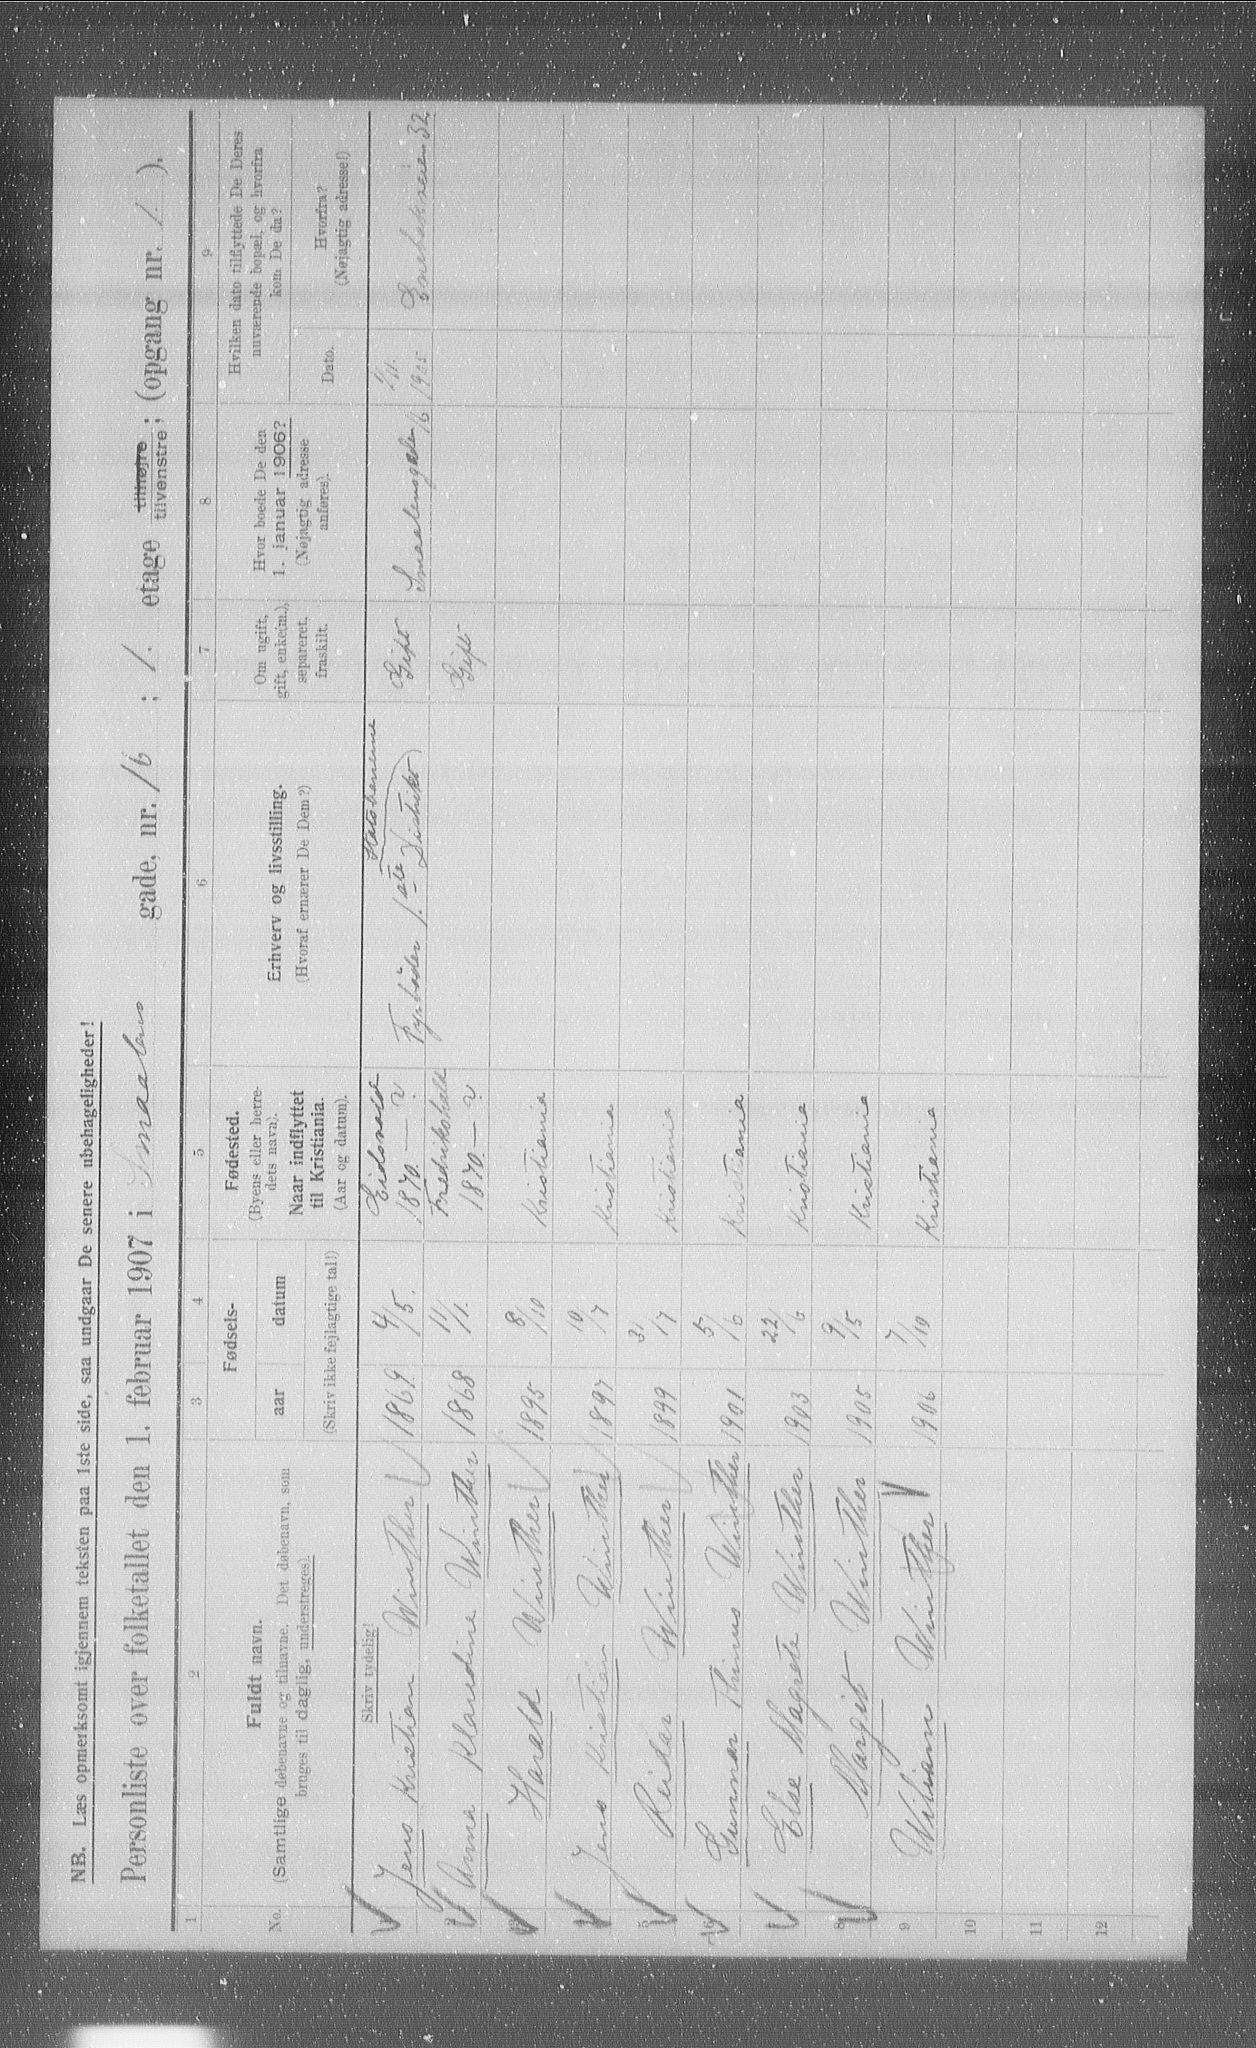 NB. Læs opmerksomt igjennem teksten paa 1ste side, saa undgaar De senere ubehageligheder!
Personliste over folketallet den 1. februar 1907 i Smaalens gade, nr. 16 ; 1. etage tilhøjre tilvenstre ; (opgang nr. 1. ).
1 2 3 4 5 6 7 8 9
No.
Fuldt navn.
(Samtlige døbenavne og tilnavne. Det døbenavn, som
bruges til daglig, understreges).
Fødsels-
aar datum
(Skriv ikke fejlagtige tal!)
Fødested.
(Byens eller herre-
dets navn).
Naar indflyttet
til Kristiania.
(Aar og datum).
Erhverv og livsstilling.
(Hvoraf ernærer De Dem?)
Om ugift,
gift, enke(m.),
separeret,
fraskilt.
Hvor boede De den
1. januar 1906?
(Nøjagtig adresse
anføres).
Hvilken dato tilflyttede De Deres
nuværende bopæl, og hvorfra
kom De da?
Dato.
Hvorfra?
(Nøjagtig adresse!)
Skriv tydelig!
Jens Kristian Winther 1869 4/5. 1870 — ? Fyrbøder 1.ste Distrikt Statsbanerne Gift Smaalensgaden 16 1905 32
2 Anna Klaudine Winther 1868 11/1. Fredrikshald 1870 — ? Gift
3 Harald Winther 1895 8/10 Kristiania
4 Jens Kristian Winther 1897 10/7 Kristiania
5 Reidar Winther 1899 31/7 Kristiania
6 Gunnar Winther 1901 5/6 Kristiania
Else Magrete Winther 1903 22/6 Kristiania
8 Margit Winther 1905 9/5 Kristiania
9 Wiliam Winther 1906 7/10 Kristiania
10
11
12